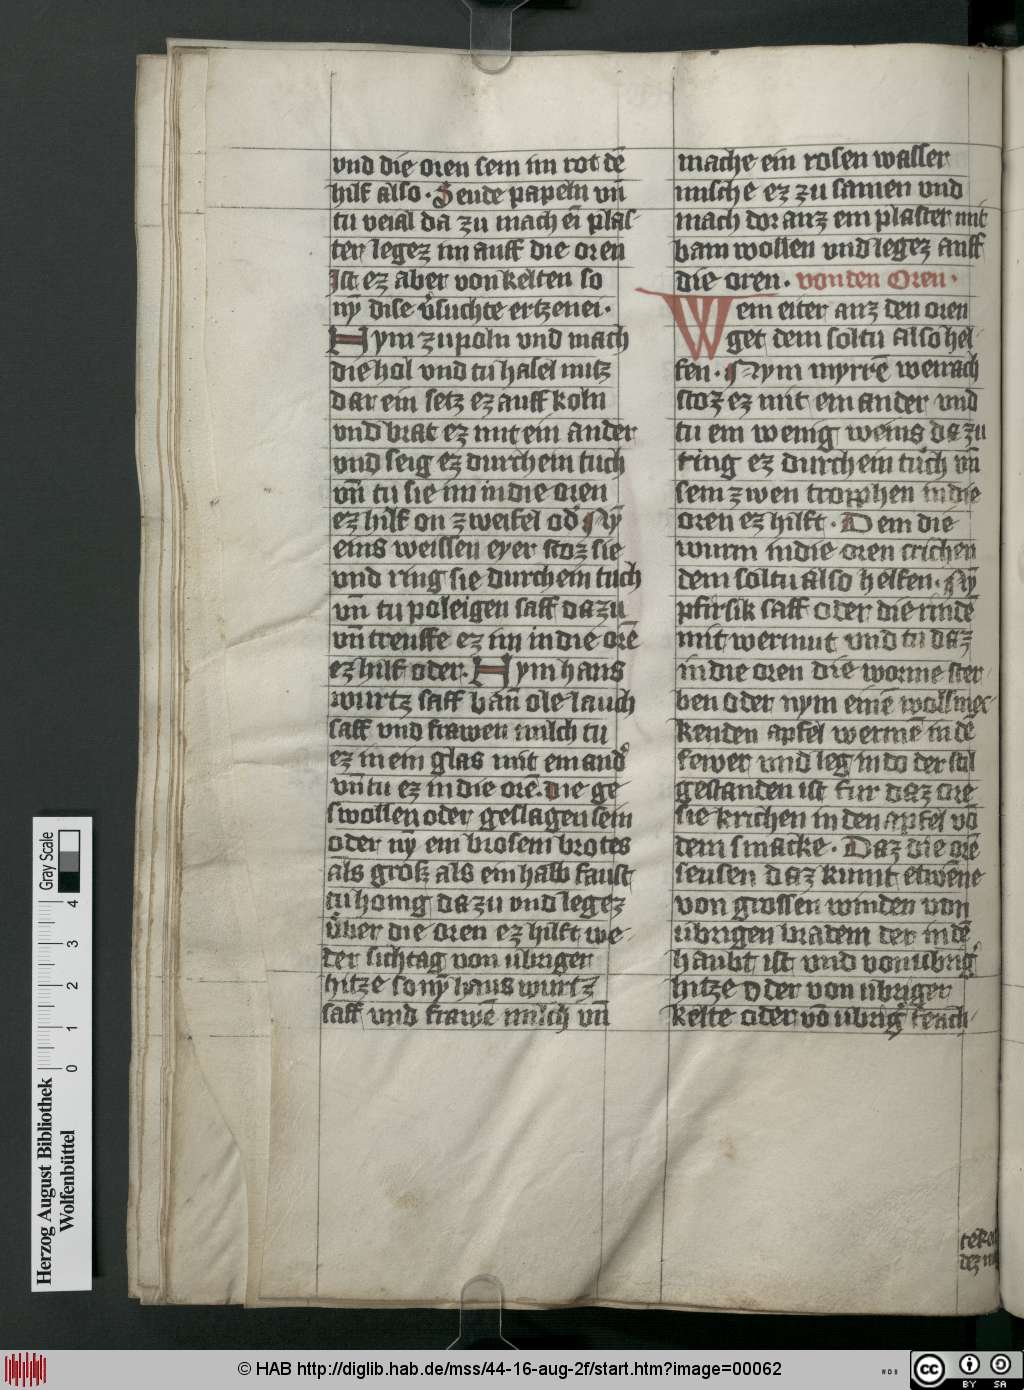 vnd die oren sein im rot dē
hilf also · Seude papeln vn̄
tu veial da zu mach eī plas-
ter legez im auff die oren
Ist ez aber von kelten so
nȳ dise v̾suchte ertzenei ·
Nym zu poln vnd mach
die hol vnd tu hasel mitz
dar ein setz ez auff koln
vnd brat ez mit ein ander
vnd seig ez durch ein tuch
vn̄ tu sie im in die oren
ez hilf on zweifel od̾ Nȳ
eins weissen eyer stoz sie
vnd ring sie durch ein tuch
vn̄ tu poleigen saff da zu
vn̄ treuffe ez im in die orē
ez hilf oder. Nym haus
wurtz saff ban̄ ole lauch
saff vnd frawen milch tu
ez in ein glas mit ein and̾
vn̄ tu ez in die orē. die ge
swollen oder geslagen sein
oder nȳ ein brosem brotes
als groß als ein halb faust
tu honig da zu vnd legez
v̊ber die oren ez hilft we-
der sichtag von ubriger
hitze so nȳ haus wurtz
saff vnd frawē milch vn̄
mache ein rosen wasser
mische ez zu samen vnd
mach dor auz ein plaster mit
bam wollen vnd legez auff
die oren. von den Oren ·
Wem eiter auz den oren
get dem soltu also hel-
fen · Nym myrrē weirach
stoz ez mit ein ander vnd
tu ein wenig weins da zu
ring ez durch ein tuch vn̄
sem zwen tropphen in die
oren ez hilft · Dem die
wurm in die oren crichen
dem soltu also helfen. Nȳ
pfirsik saff oder die rindē
mit wermut vnd tu daz
in die oren die worme ster-
ben oder nym einē wolsmec-
kenden apfel wermē in dē
fewer vnd leg in do der stil
gestanden ist fur daz ore
sie krichen in den apfel vō
dem smacke · Daz die orē
seusen daz kumt etwēne
von grossen winden von
ubrigen bradem der in dē
haubt ist vnd von ubrig̾
hitze oder von ubriger
kelte oder vō ubrig̾ feuch-
Herzog August Bibliothek
Wolfenbüttel
Gray Scale
0 1 2 3 4
© HAB http://diglib.hab.de/mss/44-16-aug-2f/start.htm?image=00062
cc BY SA